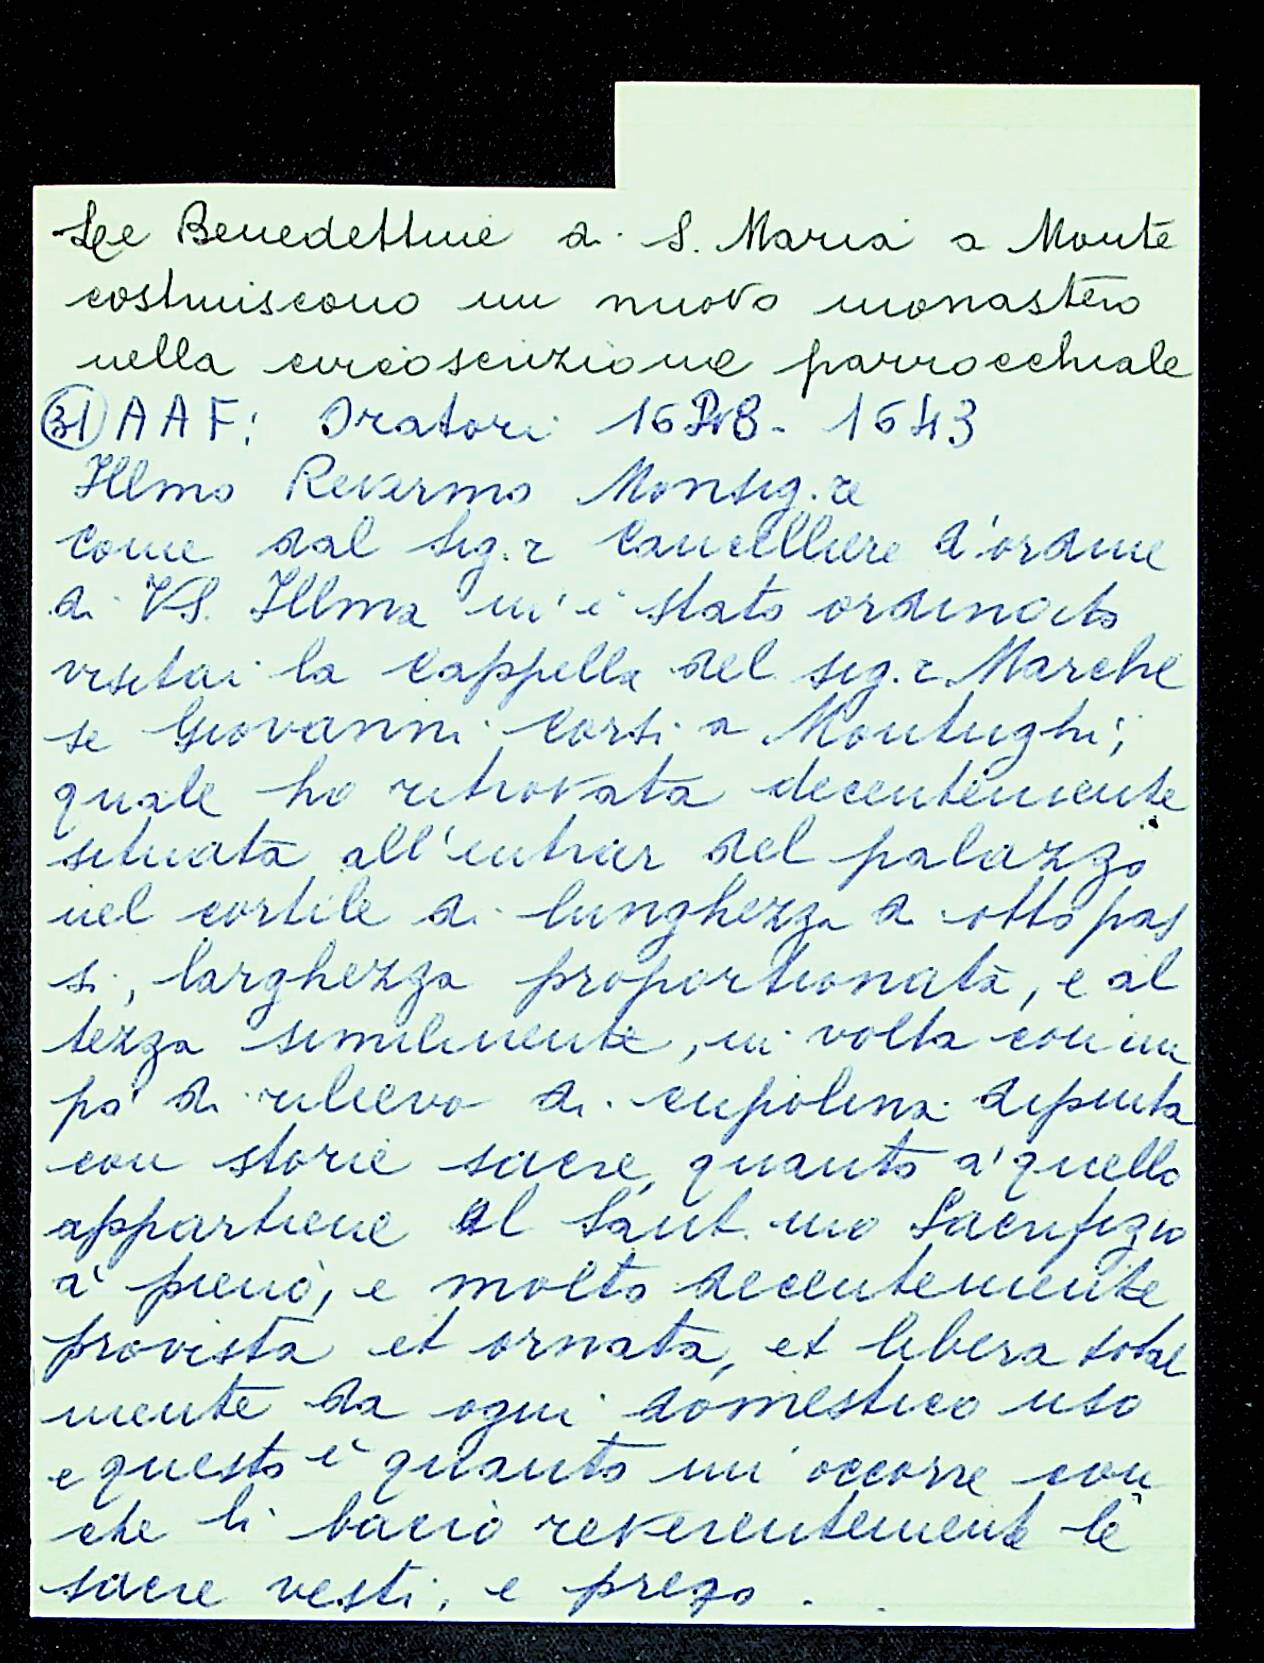 Le Benedettine di S. Maria a Monte
costruiscono un nuovo monastero
nella circoscrizione parrocchiale
(31) AAF: Oratori 1628-1643
Illmo Revermo Monsig.re
Come dal Sig.r Cancelliere d'ordine
di VS. Illma m'è stato ordinato
visitai la Cappella del sig.r Marche
se Giovanni Corsi a Montughi;
quale ho ritrovata decentemente
situata all'entrar del palazzo
nel cortile di lunghezza di otto pas
si, larghezza proportionata, e al
tezza similmente, in volta con un
pò di rilievo di cupolina dipinta
con storie sacre, quanto a' quello
appartiene al Sant.mo Sacrifizio
a' pieno, e molto decentemente
provista et ornata, et libera total
mente da ogni domestico uso
e questo è quanto mi occorre con
che li bacio reverentemente le
sacre vesti, e prego.